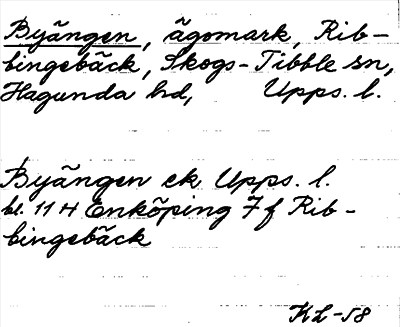 Byängen, ägomark, Rib-
bingebäck, Skogs-Tibble sn,
Hagunda hd, Upps. l.
Byängen ek Upps. l.
bl. 11 H Enköping 7 f Rib-
bingebäck
KL-58